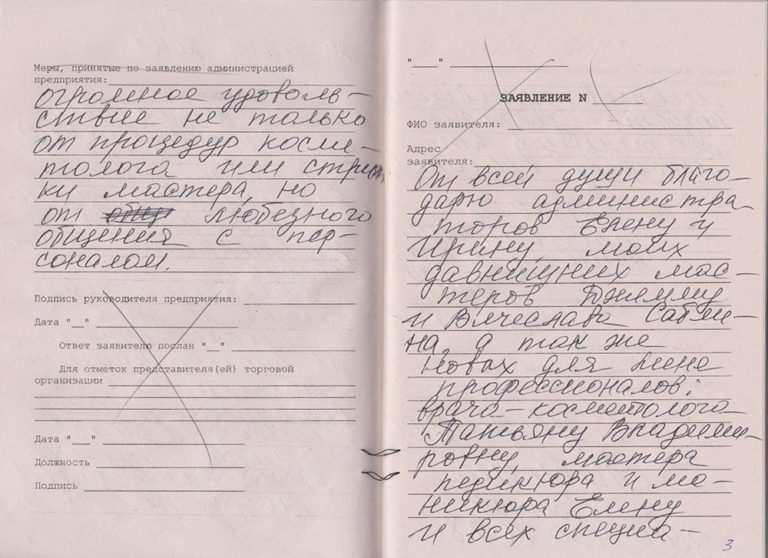 Меры, принятые по заявлению администрацией
предприятия:
огромное удоволь-
ствие не только
от процедур косме-
толога или стриж
ки мастера, но
от любезного
общения с пер-
соналом.
Подпись руководителя предприятия:
Дата "__"
Ответ заявителю послан "__"
Для отметок представителя(ей) торговой
организации
Дата "__"
Должность
Подпись
"___"
ЗАЯВЛЕНИЕ N
ФИО заявителя:
Адрес
заявителя:
От всей души благо-
дарю администра-
торов Елену и
Ирину, моих
давнишних мас-
теров Джемму
и Вячеслава Сабли-
на, а так же
новых для мене
профессионалов:
врача-косметолога
Татьяну Владими-
ровну, мастера
педикюра и ма-
никюра Елену
и всех специа-
3